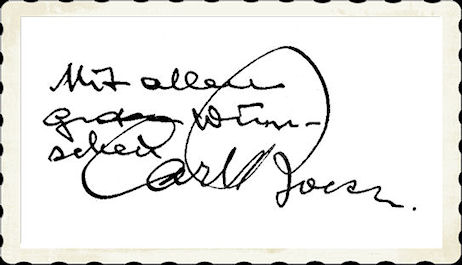 Mit allen
guten Wün-
schen
Carl